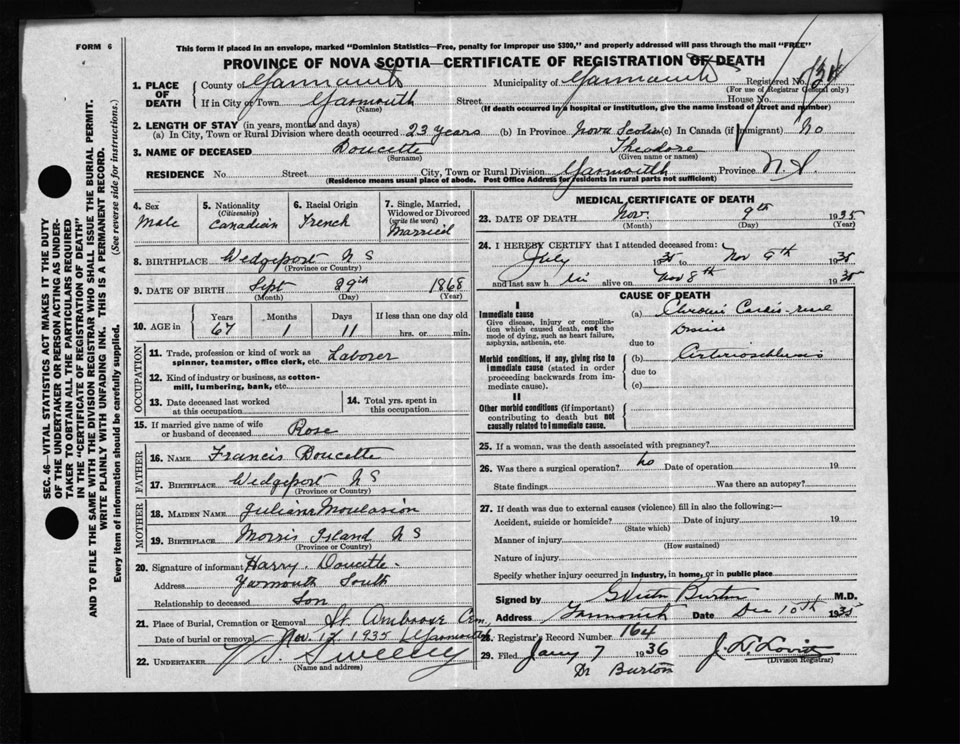 FORM 6
This form if placed in an envelope, marked "Dominion Statistics—Free, penalty for improper use $300," and properly addressed will pass through the mail "FREE"
PROVINCE OF NOVA SCOTIA—CERTIFICATE OF REGISTRATION OF DEATH
1. PLACE OF DEATH County of Yarmouth Municipality of Yarmouth Registered No.
(For use of Registrar General only)
If in City or Town Yarmouth Street House No.
(Name) (If death occurred in a hospital or institution, give the name instead of street and number)
2. LENGTH OF STAY (in years, months and days)
(a) In City, Town or Rural Division where death occurred 23 years (b) In Province Nova Scotia (c) In Canada (if immigrant) No
3. NAME OF DECEASED Doucette Theodore
(Surname) (Given name or names)
RESIDENCE No. Street City, Town or Rural Division Yarmouth Province N.S.
(Residence means usual place of abode. Post Office Address for residents in rural parts not sufficient)
4. Sex Male
5. Nationality (Citizenship) Canadian
6. Racial Origin French
7. Single, Married, Widowed or Divorced (write the word) Married
8. BIRTHPLACE Wedgeport N S
(Province or Country)
9. DATE OF BIRTH Sept 29th 1868
(Month) (Day) (Year)
10. AGE in Years 67 Months 1 Days 11 If less than one day old hrs. or min.
OCCUPATION
11. Trade, profession or kind of work as spinner, teamster, office clerk, etc. Laborer
12. Kind of industry or business, as cotton-mill, lumbering, bank, etc.
13. Date deceased last worked at this occupation
14. Total yrs. spent in this occupation
15. If married give name of wife or husband of deceased Rose
FATHER
16. NAME Francis Doucette
17. BIRTHPLACE Wedgeport N S
(Province or Country)
MOTHER
18. MAIDEN NAME Juliane Moulasion
19. BIRTHPLACE Morris Island N S
(Province or Country)
20. Signature of informant Harry Doucette
Address Yarmouth South
Relationship to deceased Son
21. Place of Burial, Cremation or Removal St. Ambrose Cem.,
Date of burial or removal Nov. 12 1935 Yarmouth
22. UNDERTAKER Sweeny
(Name and address)
MEDICAL CERTIFICATE OF DEATH
23. DATE OF DEATH Nov. 9th 1935
(Month) (Day) (Year)
24. I HEREBY CERTIFY that I attended deceased from:
July 1935 to Nov 9th 1935
and last saw h im alive on Nov 8th 1935
CAUSE OF DEATH
I
Immediate cause
Give disease, injury or complication which caused death, not the mode of dying, such as heart failure, asphyxia, asthenia, etc.
(a) Chronic Cardio-renal
Disease
due to
Morbid conditions, if any, giving rise to immediate cause (stated in order proceeding backwards from immediate cause).
(b) Arteriosclerosis
due to
(c)
II
Other morbid conditions (if important) contributing to death but not causally related to immediate cause.
25. If a woman, was the death associated with pregnancy?
26. Was there a surgical operation? No Date of operation 19
State findings Was there an autopsy?
27. If death was due to external causes (violence) fill in also the following:—
Accident, suicide or homicide? Date of injury 19
(State which)
Manner of injury
(How sustained)
Nature of injury
Specify whether injury occurred in industry, in home, or in public place
Signed by Burton M.D.
Address Yarmouth Date Dec 10th 1935
28. Registrar's Record Number 164
29. Filed Jany 7 1936
(Division Registrar)
Dr Burton
SEC. 46—VITAL STATISTICS ACT MAKES IT THE DUTY
OF THE UNDERTAKER OR PERSON ACTING AS UNDER-
TAKER TO OBTAIN ALL THE PARTICULARS REQUIRED
IN THE "CERTIFICATE OF REGISTRATION OF DEATH"
AND TO FILE THE SAME WITH THE DIVISION REGISTRAR WHO SHALL ISSUE THE BURIAL PERMIT.
WRITE PLAINLY WITH UNFADING INK. THIS IS A PERMANENT RECORD.
Every item of information should be carefully supplied. (See reverse side for instructions.)